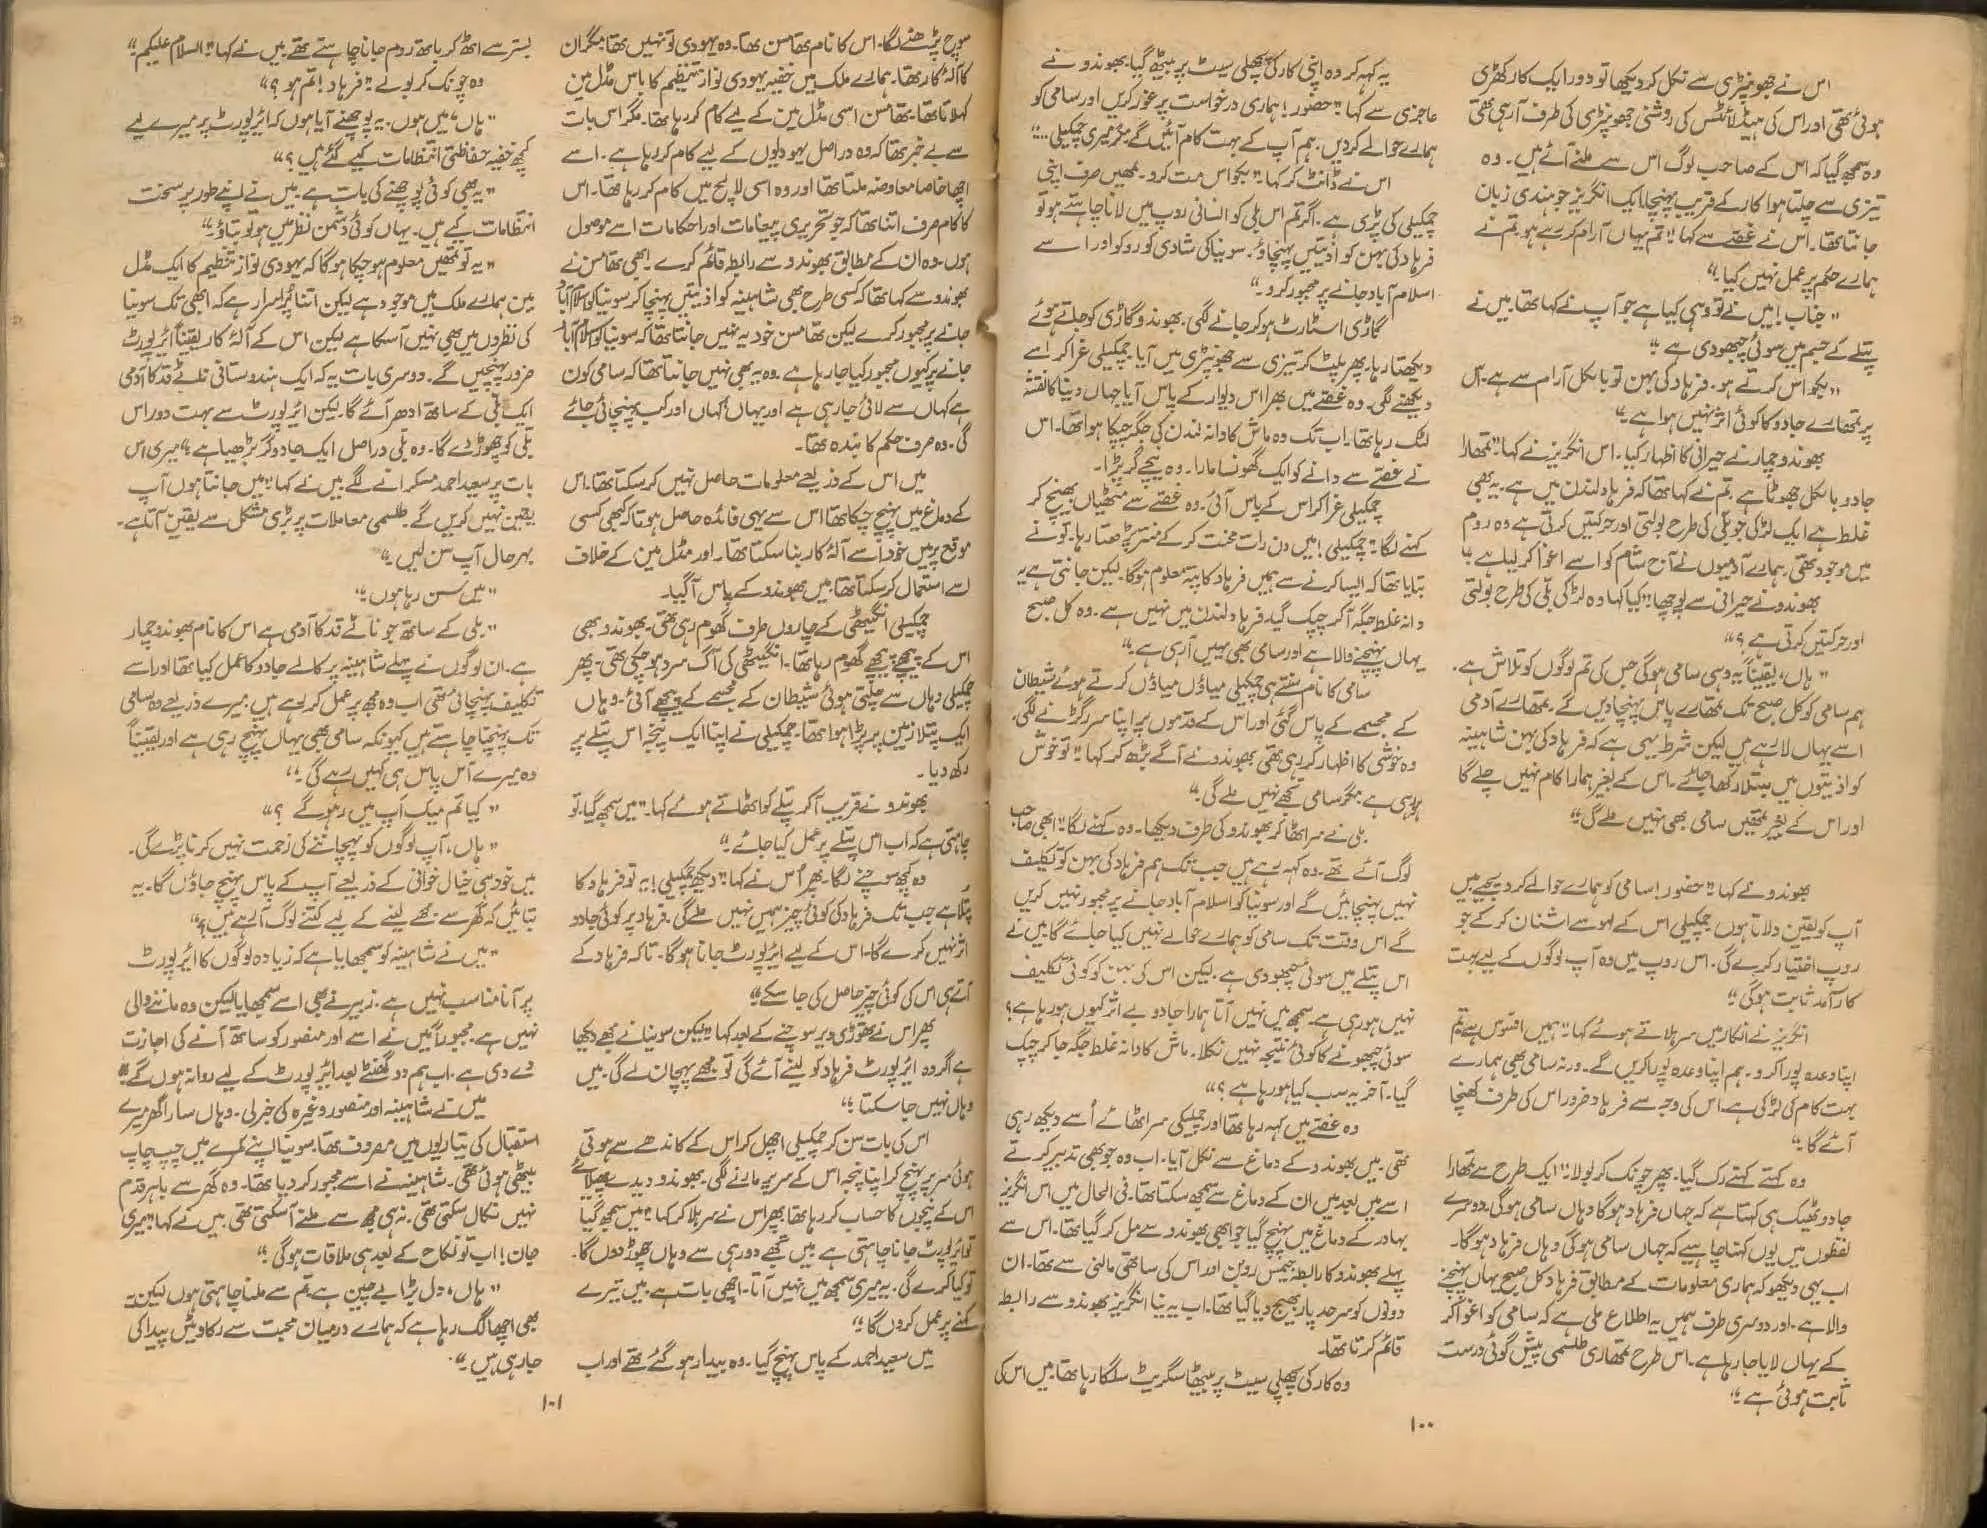 اس نے جھونپڑی سے نکل کر دیکھا تو دور ایک کار کھڑی
ہوئی تھی اور اس کی ہیڈ لائٹس کی روشنی جھونپڑی کی طرف آرہی تھی
وہ سمجھ گیا کہ اس کے صاحب لوگ اس سے ملنے آئے ہیں۔ وہ
تیزی سے چلتا ہوا کار کے قریب پہنچا۔ ایک انگریز جو ہندی زبان
جانتا تھا۔ اس نے غصے سے کہا "تم یہاں آرام کر رہے ہو۔ تم نے
ہمارے حکم پر عمل نہیں کیا۔"
"جناب! میں نے تو وہی کیا ہے جو آپ نے کہا تھا۔ میں نے
پتلے کے جسم میں سوئی چبھو دی ہے۔"
"بکواس کرتے ہو۔ فرہاد کی بہن تو بالکل آرام سے ہے۔ اس
پر تمھارے جادو کا کوئی اثر نہیں ہوا ہے۔"
بھوندو چمار نے حیرانی کا اظہار کیا۔ اس انگریز نے کہا "تمھارا
جادو بالکل جھوٹا ہے۔ تم نے کہا تھا کہ فرہاد لندن میں ہے۔ یہ بھی
غلط ہے ایک لڑکی جو بلی کی طرح بولتی اور حرکتیں کرتی ہے وہ روم
میں موجود تھی۔ ہمارے آدمیوں نے آج شام کو اسے اغوا کر لیا ہے۔"
بھوندو نے حیرانی سے پوچھا "کیا کہا وہ لڑکی بلی کی طرح بولتی
اور حرکتیں کرتی ہے؟"
"ہاں، یقیناً یہ وہی سامی ہوگی جس کی تم لوگوں کو تلاش ہے۔
ہم سامی کو کل صبح تک تمھارے پاس پہنچا دیں گے۔ تمھارے آدمی
اسے یہاں لا رہے ہیں لیکن شرط یہی ہے کہ فرہاد کی بہن شاہینہ
کو اذیتوں میں مبتلا رکھا جائے۔ اس کے بغیر ہمارا کام نہیں چلے گا
اور اس کے بغیر تمھیں سامی بھی نہیں ملے گی۔"
بھوندو نے کہا "حضور! سامی کو ہمارے حوالے کر دیجیے۔ میں
آپ کو یقین دلاتا ہوں چمکیلی اس کے لہو سے اشنان کر کے جو
روپ اختیار کرے گی۔ اس روپ میں وہ آپ لوگوں کے لیے بہت
کار آمد ثابت ہوگی۔"
انگریز نے انکار میں سر ہلاتے ہوئے کہا "ہمیں افسوس ہے تم
اپنا وعدہ پورا کرو۔ ہم اپنا وعدہ پورا کریں گے۔ ورنہ سامی بھی ہمارے
بہت کام کی لڑکی ہے۔ اس کی وجہ سے فرہاد ضرور اس کی طرف کھنچا
آئے گا۔"
وہ کہتے کہتے رک گیا۔ پھر چونک کر بولا "ایک طرح سے تمھارا
جادو ٹھیک ہی کہتا ہے کہ جہاں فرہاد ہوگا وہاں سامی ہوگی۔ دوسرے
لفظوں میں یوں کہنا چاہیے کہ جہاں سامی ہوگی وہاں فرہاد ہوگا۔
اب یہی دیکھو کہ ہماری معلومات کے مطابق فرہاد کل صبح یہاں پہنچنے
والا ہے۔ اور دوسری طرف ہمیں یہ اطلاع ملی ہے کہ سامی کو اغوا کر
کے یہاں لایا جا رہا ہے۔ اس طرح تمھاری طلسمی پیش گوئی درست
ثابت ہوئی ہے۔"
یہ کہہ کر وہ اپنی کار کی پچھلی سیٹ پر بیٹھ گیا۔ بھوندو نے
عاجزی سے کہا "حضور! ہماری درخواست پر غور کریں اور سامی کو
ہمارے حوالے کر دیں۔ ہم آپ کے بہت کام آئیں گے۔ میری چمکیلی..."
اس نے ڈانٹ کر کہا "بکواس مت کرو۔ تمھیں صرف اپنی
چمکیلی کی پڑی ہے۔ اگر تم اس بلی کو انسانی روپ میں لانا چاہتے ہو تو
فرہاد کی بہن کو اذیتیں پہنچاؤ۔ سونیا کی شادی کو روکو اور اسے
اسلام آباد جانے پر مجبور کرو۔"
گاڑی اسٹارٹ ہو کر جانے لگی۔ بھوندو گاڑی کو جاتے ہوئے
دیکھتا رہا۔ پھر پلٹ کر تیزی سے جھونپڑی میں آیا۔ چمکیلی غرا کر اسے
دیکھنے لگی۔ وہ غصے میں بھرا اس دیوار کے پاس آیا جہاں دنیا کا نقشہ
لٹک رہا تھا۔ اب تک وہ ماش کا دانہ لندن کی جگہ چپکا ہوا تھا۔ اس
نے غصے سے دانے کو ایک گھونسا مارا۔ وہ نیچے گر پڑا۔
چمکیلی غرا کر اس کے پاس آئی۔ وہ غصے سے مٹھیاں بھینچ کر
کہنے لگا "چمکیلی! میں دن رات محنت کر کے منتر پڑھتا رہا۔ تو نے
بتایا تھا کہ ایسا کرنے سے ہمیں فرہاد کا پتہ معلوم ہوگا۔ لیکن جانتی ہے یہ
دانہ غلط جگہ آکر چپک گیا۔ فرہاد لندن میں نہیں ہے۔ وہ کل صبح
یہاں پہنچنے والا ہے اور سامی بھی یہیں آ رہی ہے۔"
سامی کا نام سنتے ہی چمکیلی میاؤں میاؤں کرتے ہوئے شیطان
کے مجسمے کے پاس گئی اور اس کے قدموں پر اپنا سر رگڑنے لگی۔
وہ خوشی کا اظہار کر رہی تھی۔ بھوندو نے آگے بڑھ کر کہا "تو خوش
ہو رہی ہے۔ مگر سامی تجھے نہیں ملے گی۔"
بلی نے سر اٹھا کر بھوندو کی طرف دیکھا۔ وہ کہنے لگا "ابھی صاحب
لوگ آئے تھے۔ وہ کہہ رہے ہیں جب تک ہم فرہاد کی بہن کو تکلیف
نہیں پہنچائیں گے اور سونیا کو اسلام آباد جانے پر مجبور نہیں کریں
گے اس وقت تک سامی کو ہمارے حوالے نہیں کیا جائے گا۔ میں نے
اس پتلے میں سوئی چبھو دی ہے۔ لیکن اس کی بہن کو کوئی تکلیف
نہیں ہو رہی ہے۔ سمجھ میں نہیں آتا ہمارا جادو بے اثر کیوں ہو رہا ہے؟
سوئی چبھونے کا کوئی نتیجہ نہیں نکلا۔ ماش کا دانہ غلط جگہ جا کر چپک
گیا۔ آخر یہ سب کیا ہو رہا ہے؟"
وہ غصے میں کہہ رہا تھا اور چمکیلی سر اٹھائے اُسے دیکھ رہی
تھی۔ میں بھوندو کے دماغ سے نکل آیا۔ اب وہ جو بھی تدبیر کرتے
اسے میں بعد میں ان کے دماغ سے سمجھ سکتا تھا۔ فی الحال میں اس انگریز
بہادر کے دماغ میں پہنچ گیا جو ابھی بھوندو سے مل کر گیا تھا۔ اس سے
پہلے بھوندو کا رابطہ جیمس روبن اور اس کی ساتھی مالنی سے تھا۔ ان
دونوں کو سرحد پار بھیج دیا گیا تھا۔ اب یہ نیا انگریز بھوندو سے رابطہ
قائم کرتا تھا۔
وہ کار کی پچھلی سیٹ پر بیٹھا سگریٹ سلگا رہا تھا۔ میں اس کی
۱۰۰
سوچ پڑھنے لگا۔ اس کا نام تھامسن تھا۔ وہ یہودی تو نہیں تھا مگر ان
کا آلۂ کار تھا۔ ہمارے ملک میں خفیہ یہودی نواز تنظیم کا باس مڈل مین
کہلاتا تھا۔ تھامسن اسی مڈل مین کے لیے کام کر رہا تھا۔ مگر اس بات
سے بے خبر تھا کہ وہ در اصل یہودیوں کے لیے کام کر رہا ہے۔ اسے
اچھا خاصا معاوضہ ملتا تھا اور وہ اسی لالچ میں کام کر رہا تھا۔ اس
کا کام صرف اتنا تھا کہ جو تحریری پیغامات اور احکامات اسے موصول
ہوں۔ وہ ان کے مطابق بھوندو سے رابطہ قائم کرے۔ ابھی تھامسن نے
بھوندو سے کہا تھا کہ کسی طرح بھی شاہینہ کو اذیتیں پہنچا کر سونیا کو اسلام آباد
جانے پر مجبور کرے لیکن تھامسن خود یہ نہیں جانتا تھا کہ سونیا کو اسلام آباد
جانے پر کیوں مجبور کیا جا رہا ہے۔ وہ یہ بھی نہیں جانتا تھا کہ سامی کون
ہے کہاں سے لائی جا رہی ہے اور یہاں کہاں اور کب پہنچائی جائے
گی۔ وہ صرف حکم کا بندہ تھا۔
میں اس کے ذریعے معلومات حاصل نہیں کر سکتا تھا۔ اس
کے دماغ میں پہنچ چکا تھا اس سے یہی فائدہ حاصل ہوتا کہ کبھی کسی
موقع پر میں خود اسے آلۂ کار بنا سکتا تھا۔ اور مڈل مین کے خلاف
اسے استعمال کر سکتا تھا۔ میں بھوندو کے پاس آگیا۔
چمکیلی انگیٹھی کے چاروں طرف گھوم رہی تھی۔ بھوندو بھی
اس کے پیچھے پیچھے گھوم رہا تھا۔ انگیٹھی کی آگ سرد ہو چکی تھی۔ پھر
چمکیلی وہاں سے چلتی ہوئی شیطان کے مجسمے کے پیچھے آئی۔ وہاں
ایک پتلا زمین پر پڑا ہوا تھا۔ چمکیلی نے اپنا ایک پنجہ اس پتلے پر
رکھ دیا۔
بھوندو نے قریب آکر پتلے کو اٹھاتے ہوئے کہا۔ "میں سمجھ گیا، تو
چاہتی ہے کہ اب اس پتلے پر عمل کیا جائے۔"
وہ کچھ سوچنے لگا۔ پھر اُس نے کہا "دیکھ چمکیلی! یہ تو فرہاد کا
پتلا ہے جب تک فرہاد کی کوئی چیز ہمیں نہیں ملے گی۔ فرہاد پر کوئی جادو
اثر نہیں کرے گا۔ اس کے لیے ایئرپورٹ جانا ہوگا۔ تاکہ فرہاد کے
آتے ہی اس کی کوئی چیز حاصل کی جا سکے۔"
پھر اس نے تھوڑی دیر سوچنے کے بعد کہا "لیکن سونیا نے مجھے دیکھا
ہے اگر وہ ایئرپورٹ فرہاد کو لینے آئے گی تو مجھے پہچان لے گی۔ میں
وہاں نہیں جا سکتا۔"
اس کی بات سن کر چمکیلی اچھل کر اس کے کاندھے سے ہوتی
ہوئی سر پر پہنچ کر اپنا پنجہ اس کے سر پر مارنے لگی۔ بھوندو دیدے پھیلائے
اس کے پنجوں کا حساب کر رہا تھا پھر اس نے سر ہلا کر کہا "میں سمجھ گیا
تو ایئرپورٹ جانا چاہتی ہے۔ میں تجھے دور ہی سے وہاں چھوڑ دوں گا۔
تو کیا کرے گی۔ یہ میری سمجھ میں نہیں آتا۔ اچھی بات ہے۔ میں تیرے
کہنے پر عمل کروں گا۔"
میں سعید احمد کے پاس پہنچ گیا۔ وہ بیدار ہو گئے تھے اور اب
بستر سے اٹھ کر باتھ روم جانا چاہتے تھے۔ میں نے کہا "السلام علیکم۔"
وہ چونک کر بولے "فرہاد! تم ہو؟"
"ہاں، میں ہوں۔ یہ پوچھنے آیا ہوں کہ ائرپورٹ پر میرے لیے
کچھ خفیہ حفاظتی انتظامات کیے گئے ہیں؟"
"یہ بھی کوئی پوچھنے کی بات ہے۔ میں نے اپنے طور پر سخت
انتظامات کیے ہیں۔ یہاں کوئی دشمن نظر میں ہو تو بتاؤ۔"
"یہ تو تمھیں معلوم ہو چکا ہوگا کہ یہودی نواز تنظیم کا ایک مڈل
مین ہمارے ملک میں موجود ہے لیکن اتنا پُراسرار ہے کہ ابھی تک سونیا
کی نظروں میں بھی نہیں آسکا ہے لیکن اس کے آلۂ کار یقیناً ائرپورٹ
ضرور پہنچیں گے۔ دوسری بات یہ کہ ایک ہندوستانی ناٹے قد کا آدمی
ایک بلی کے ساتھ ادھر آئے گا۔ لیکن ائرپورٹ سے بہت دور اس
بلی کو چھوڑ دے گا۔ وہ بلی در اصل ایک جادوگر بڑھیا ہے۔" میری اس
بات پر سعید احمد مسکرانے لگے۔ میں نے کہا "میں جانتا ہوں آپ
یقین نہیں کریں گے۔ طلسمی معاملات پر بڑی مشکل سے یقین آتا ہے۔
بہر حال آپ سن لیں۔"
"میں سن رہا ہوں۔"
"بلی کے ساتھ جو ناٹے قد کا آدمی ہے اس کا نام بھوندو چمار
ہے۔ ان لوگوں نے پہلے شاہینہ پر کالے جادو کا عمل کیا تھا اور اسے
تکلیف پہنچائی تھی اب وہ مجھ پر عمل کر رہے ہیں۔ میرے ذریعے وہ سامی
تک پہنچنا چاہتے ہیں کیونکہ سامی بھی یہاں پہنچ رہی ہے اور یقیناً
وہ میرے آس پاس ہی کہیں رہے گی۔"
"کیا تم میک اپ میں رہوگے؟"
"ہاں، آپ لوگوں کو پہچاننے کی زحمت نہیں کرنا پڑے گی۔
میں خود ہی خیال خوانی کے ذریعے آپ کے پاس پہنچ جاؤں گا۔ یہ
بتائیں کہ گھر سے مجھے لینے کے لیے کتنے لوگ آ رہے ہیں؟"
"میں نے شاہینہ کو سمجھایا ہے کہ زیادہ لوگوں کا ائرپورٹ
پر آنا مناسب نہیں ہے۔ زبیر نے بھی اسے سمجھایا لیکن وہ ماننے والی
نہیں ہے۔ مجبوراً میں نے اسے اور منصور کو ساتھ آنے کی اجازت
دے دی ہے۔ اب ہم دو گھنٹے بعد ائرپورٹ کے لیے روانہ ہوں گے۔"
میں نے شاہینہ اور منصور وغیرہ کی خبر لی۔ وہاں سارا گھر میرے
استقبال کی تیاریوں میں مصروف تھا۔ سونیا اپنے کمرے میں چپ چاپ
بیٹھی ہوئی تھی۔ شاہینہ نے اسے مجبور کر دیا تھا۔ وہ گھر سے باہر قدم
نہیں نکال سکتی تھی۔ نہ ہی مجھ سے ملنے آسکتی تھی۔ میں نے کہا "میری
جان! اب تو نکاح کے بعد ہی ملاقات ہوگی۔"
"ہاں، دل بڑا بے چین ہے۔ تم سے ملنا چاہتی ہوں لیکن یہ
بھی اچھا لگ رہا ہے کہ ہمارے درمیان محبت سے رکاوٹیں پیدا کی
جا رہی ہیں۔"
۱۰۱